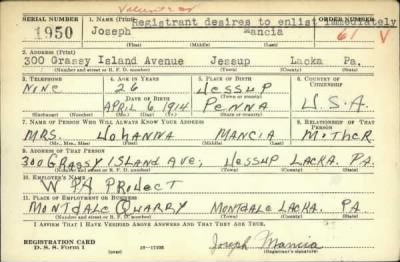 Volunteer
SERIAL NUMBER 1. NAME (Print) Registrant desires to enlist immediately
1950 Joseph Mancia 61 V
(First) (Middle) (Last)
2. ADDRESS (Print)
300 Grassy Island Avenue Jessup Lacka Pa.
(Number and street or R. F. D. number) (Town) (County) (State)
3. TELEPHONE 4. AGE IN YEARS 5. PLACE OF BIRTH 6. COUNTRY OF CITIZENSHIP
NINE 26 JESSUP
DATE OF BIRTH (Town or county)
APRIL 6, 1914 PENNA U.S.A.
(Exchange) (No.) (Mo.) (Day) (Yr.) (State or country)
7. NAME OF PERSON WHO WILL ALWAYS KNOW YOUR ADDRESS 8. RELATIONSHIP OF THAT PERSON
MRS. JOHANNA MANCIA MOTHER
(Mr., Mrs., Miss) (First) (Middle) (Last)
9. ADDRESS OF THAT PERSON
300 GRASSY ISLAND AVE, JESSUP LACKA. PA.
(Number and street or R. F. D. number) (Town) (County) (State)
10. EMPLOYER'S NAME
W PA PROJECT
11. PLACE OF EMPLOYMENT OR BUSINESS
MONTDALE QUARRY MONTDALE LACKA. PA.
(Number and street or R. F. D. number) (Town) (County) (State)
I AFFIRM THAT I HAVE VERIFIED ABOVE ANSWERS AND THAT THEY ARE TRUE.
REGISTRATION CARD
D. S. S. Form 1 Joseph Mancia
(Registrant's signature)